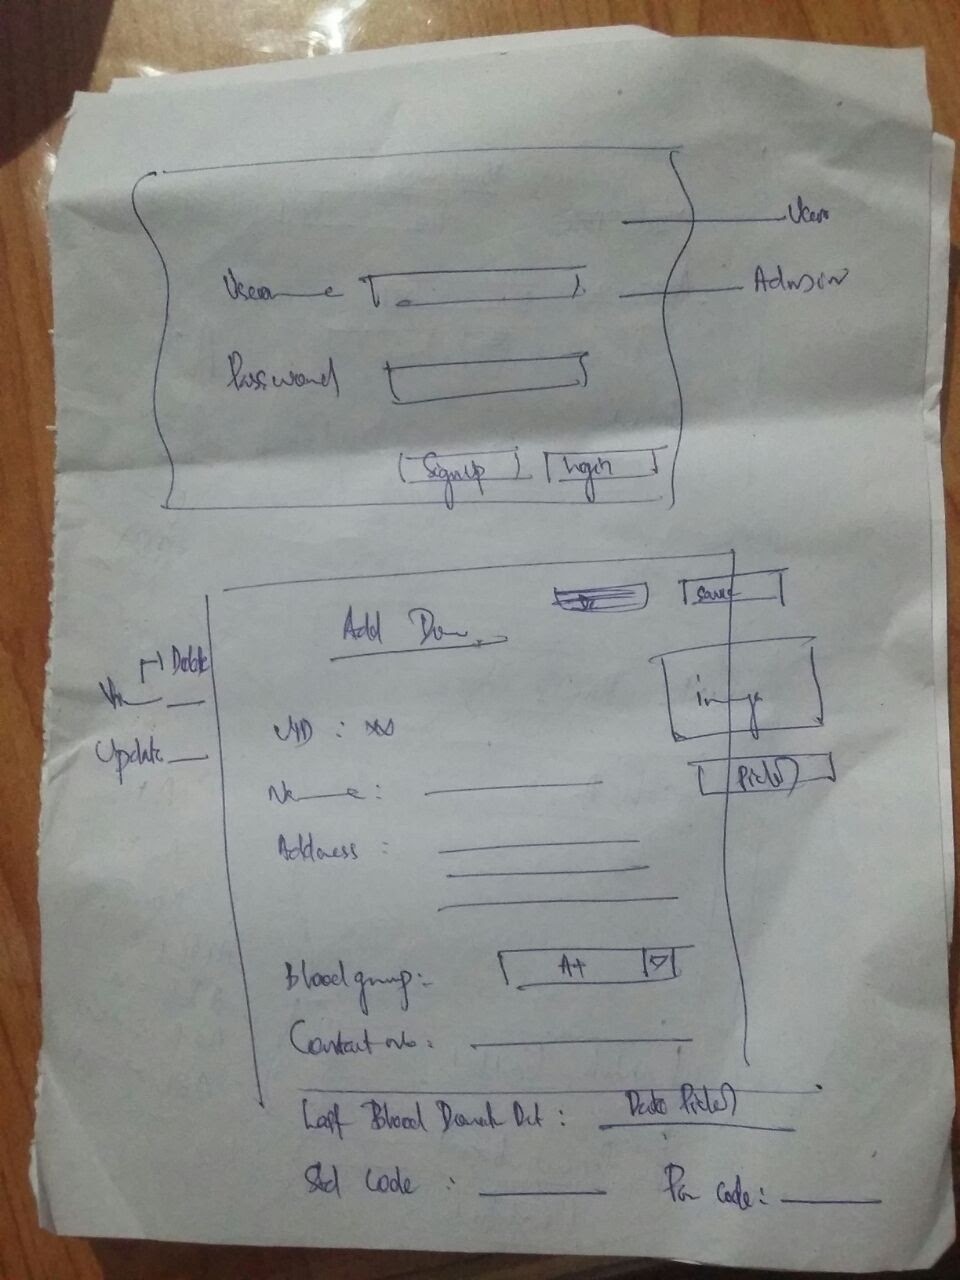 User
Username
Admin
Password
SignUp Login
Save
Add
Delete
image
Update
UID : xx
Name :
Picker
Address :
Blood group : A+
Contact no :
Last Blood Donate Dat : Date Picker
Std Code : Pin code :